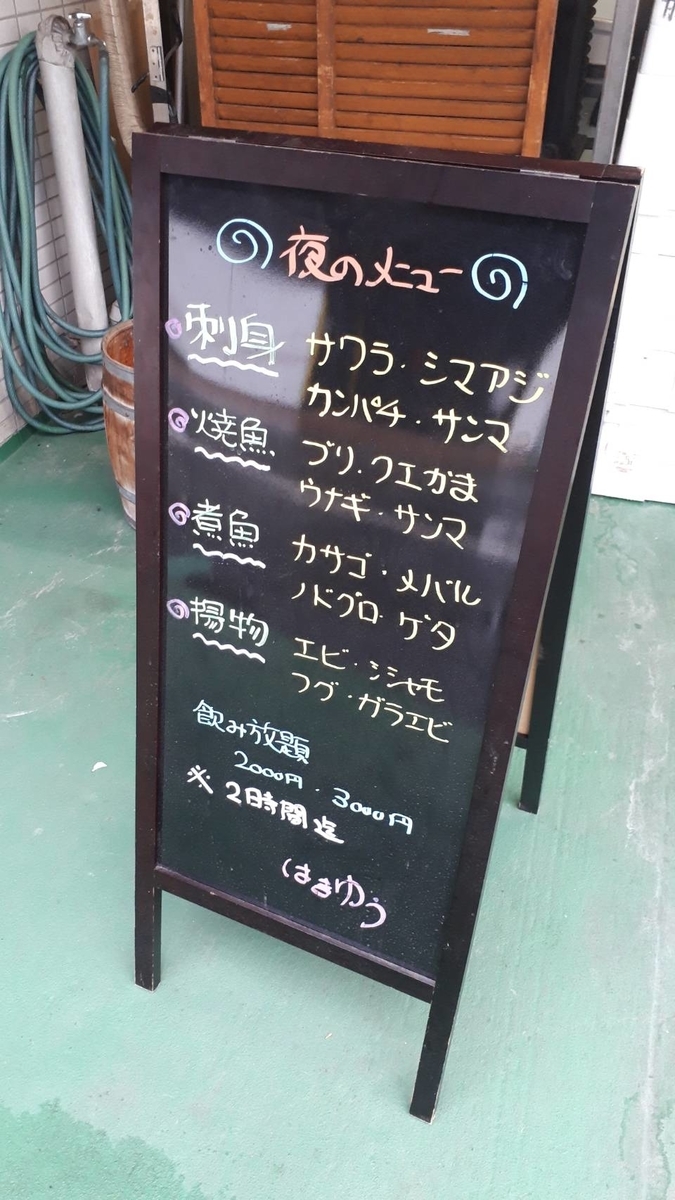 夜のメニュー
刺身 サワラ・シマアジ
カンパチ・サンマ
焼魚 ブリ・クエかま
ウナギ・サンマ
煮魚 カサゴ・メバル
ノドグロ・ゲタ
揚物 エビ・シシャモ
フグ・ガラエビ
飲み放題
2000円・3000円
※2時間迄
はまゆう